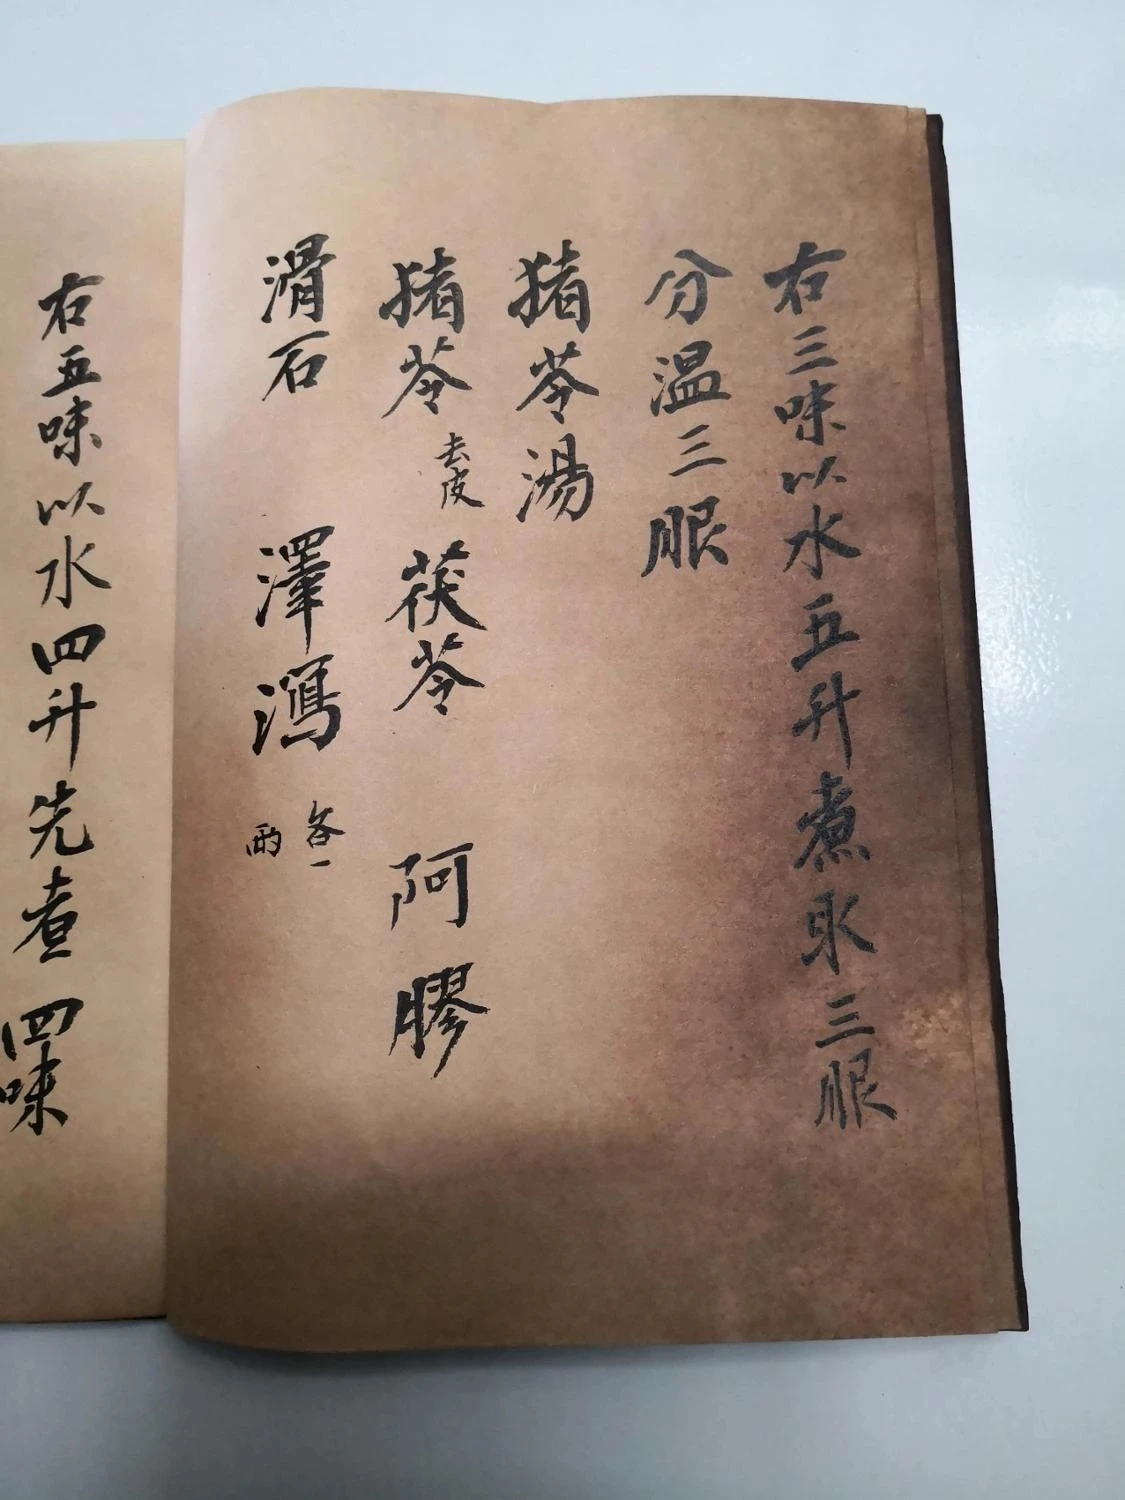 右三味以水五升煮取三服
分温三服
猪苓湯
猪苓去皮 茯苓 阿膠
滑石 澤瀉各一兩
右五味以水四升先煮四味